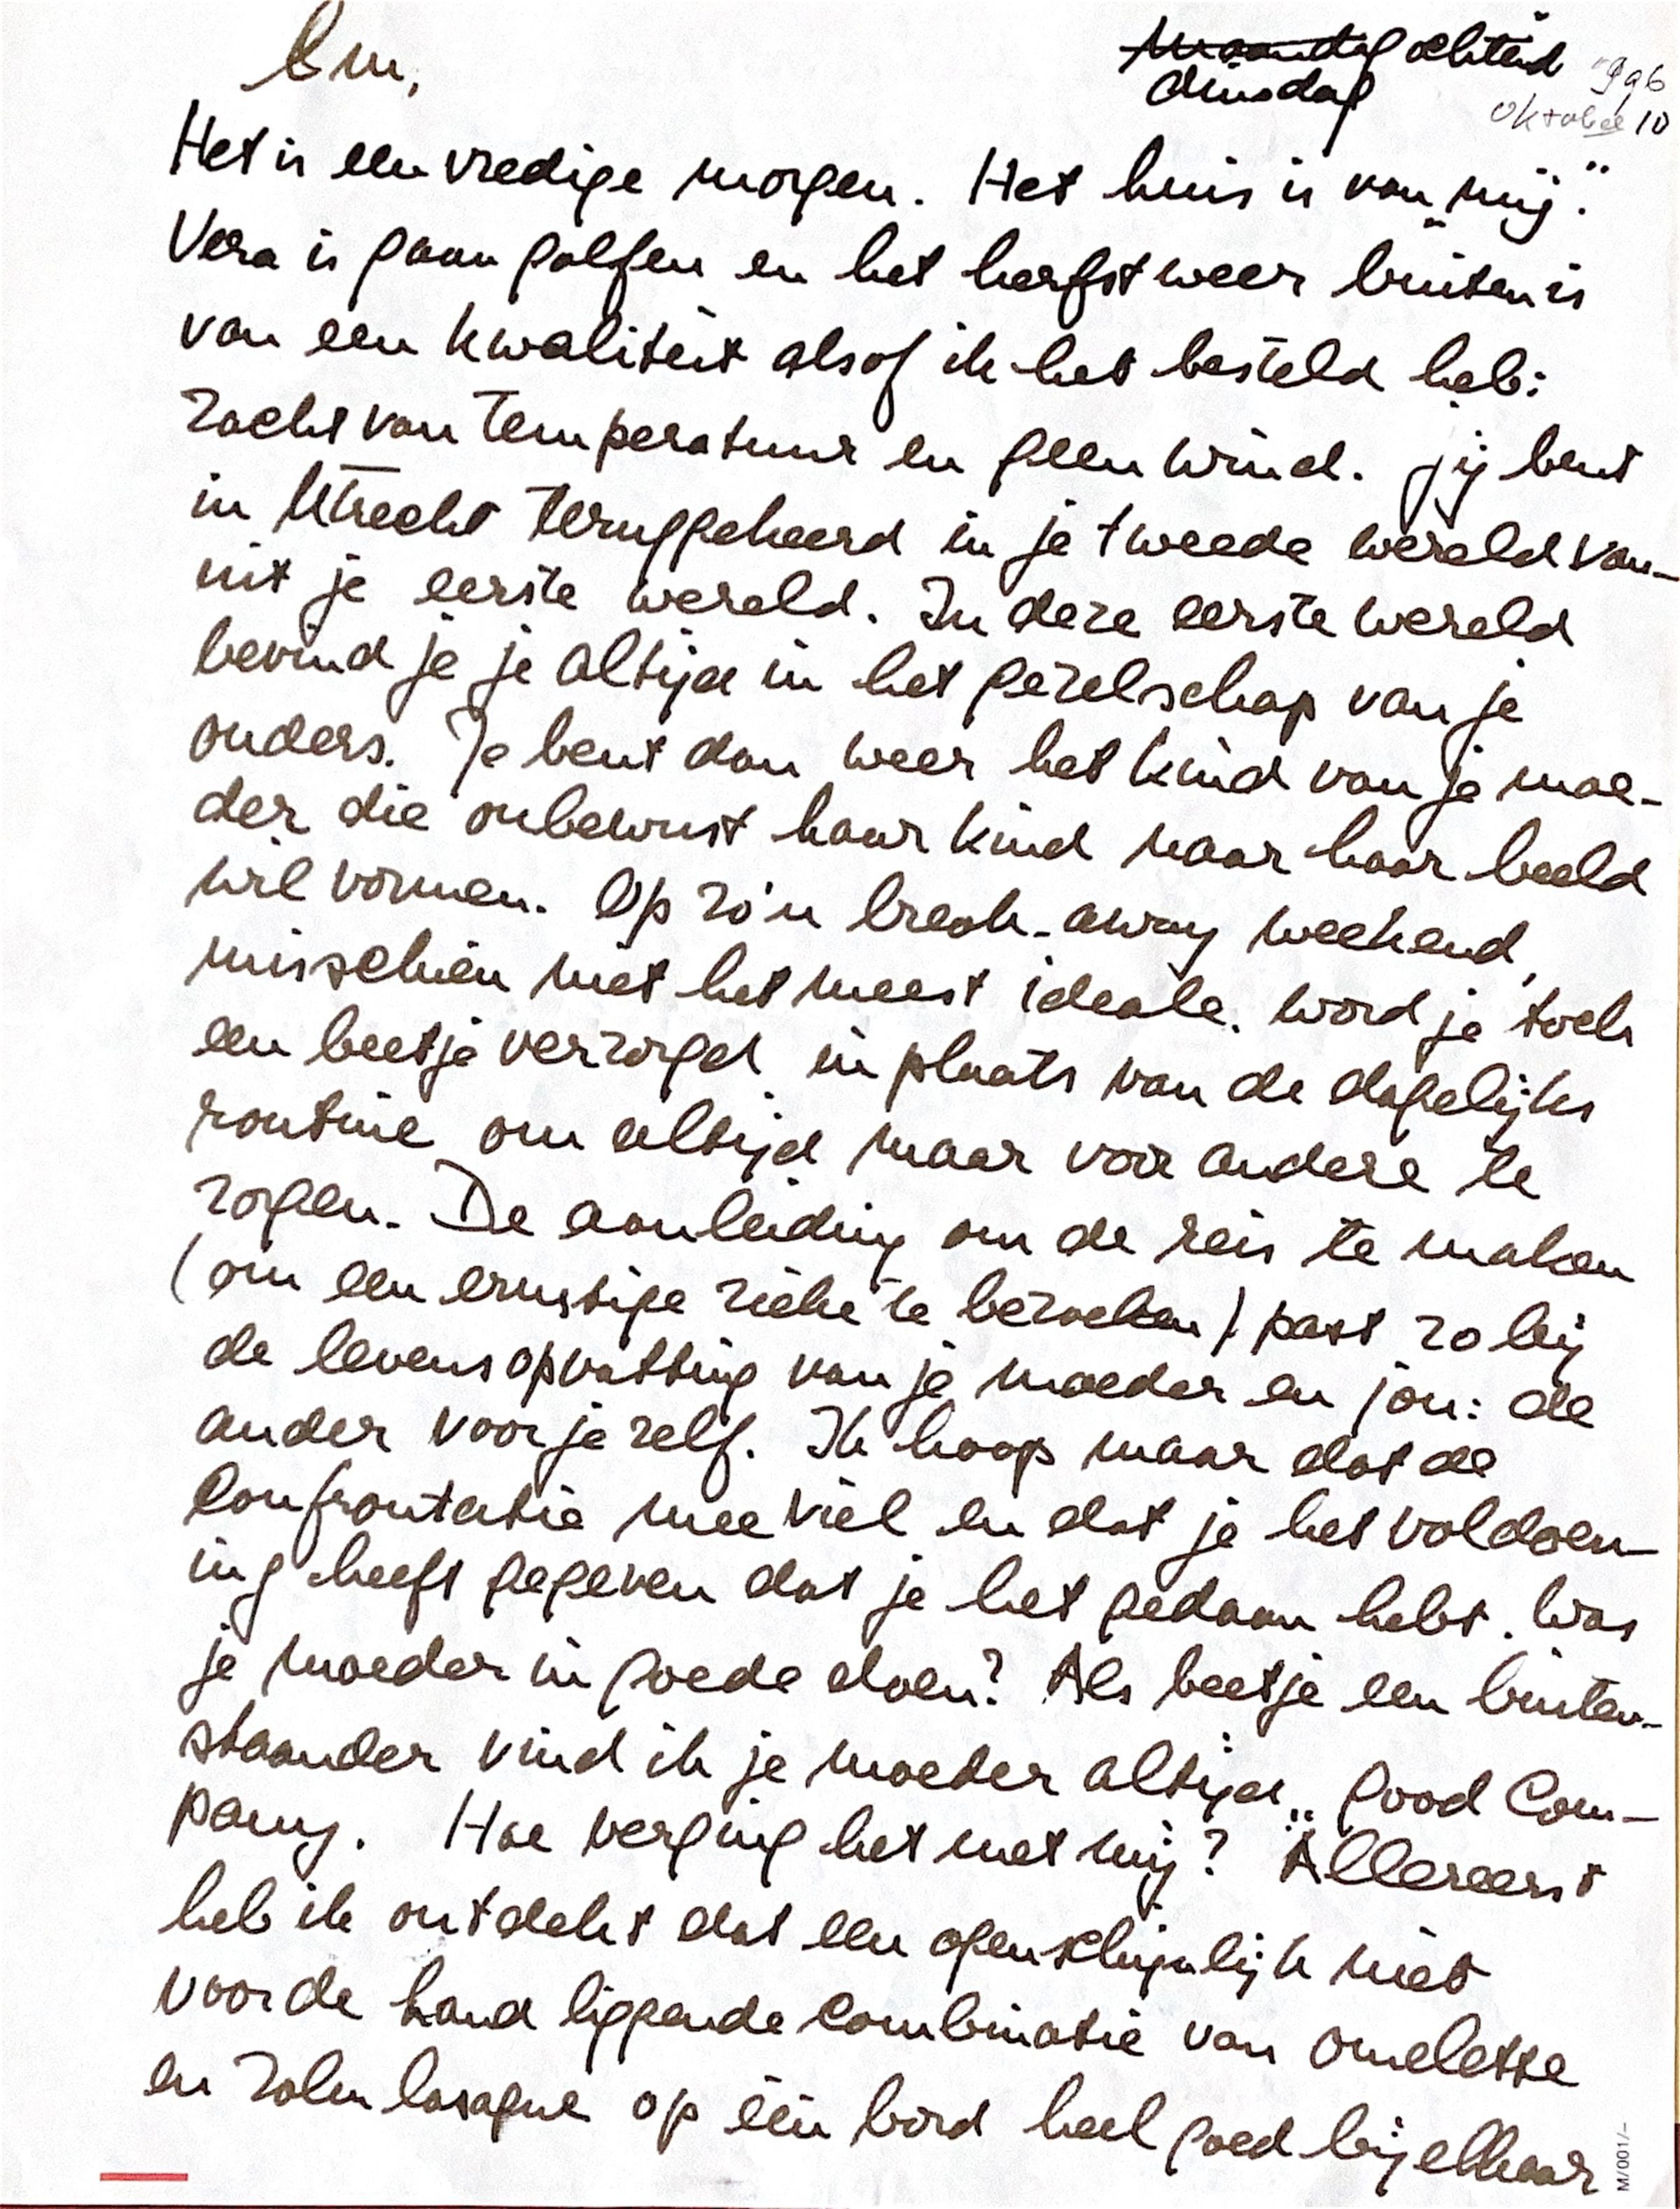 Em,
~~Maandag~~ ochtend
dinsdag
996
oktober 10
Het is een vredige morgen. Het huis is van „mij".
Vera is gaan golfen en het herfstweer buiten is
van een kwaliteit alsof ik het besteld heb:
zacht van temperatuur en geen wind. Jij bent
in Utrecht teruggekeerd in je tweede wereld van-
uit je eerste wereld. In deze eerste wereld
bevind je je altijd in het gezelschap van je
ouders. Je bent dan weer het kind van je moe-
der die onbewust haar kind naar haar beeld
wil vormen. Op zo'n break-away weekend,
misschien niet het meest ideale, word je toch
een beetje verzorgd in plaats van de dagelijks
routine om altijd maar voor andere te
zorgen. De aanleiding om de reis te maken
(om een ernstige zieke te bezoeken) past zo bij
de levensopvatting van je moeder en jou: de
ander voor je zelf. Ik hoop maar dat de
confrontatie mee viel en dat je het voldoen-
ing heeft gegeven dat je het gedaan hebt. Was
je moeder in goede doen? Als beetje een buiten-
staander vind ik je moeder altijd „good Com-
pany". Hoe verging het met mij? Allereerst
heb ik ontdekt dat een ogenschijnlijk niet
voor de hand liggende combinatie van omelette
en zalm lasagne op één bord heel goed bij elkaar
M/001/-